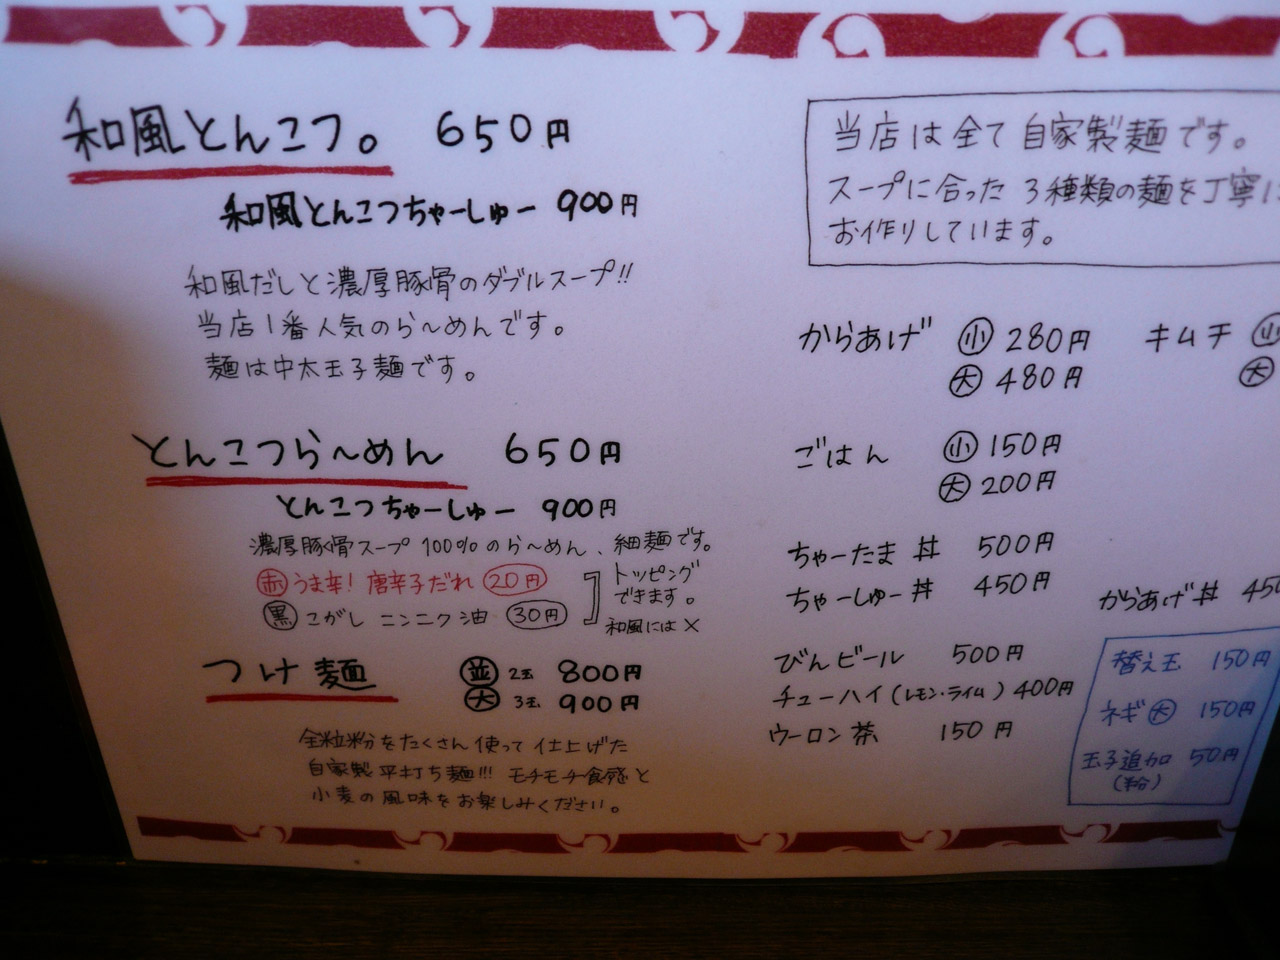 和風とんこつ。 650円
和風とんこつちゃーしゅー 900円
和風だしと濃厚豚骨のダブルスープ!!
当店1番人気のら〜めんです。
麺は中太玉子麺です。
とんこつら〜めん 650円
とんこつちゃーしゅー 900円
濃厚豚骨スープ100%のら〜めん、細麺です。
赤 うま辛! 唐辛子だれ 20円
黒 こがしニンニク油 30円
トッピング
できます。
和風には×
つけ麺 並 2玉 800円
大 3玉 900円
全粒粉をたくさん使って仕上げた
自家製平打ち麺!!! モチモチ食感と
小麦の風味をお楽しみください。
当店は全て自家製麺です。
スープに合った3種類の麺を丁寧に
お作りしています。
からあげ 小 280円
大 480円
キムチ 小
大
ごはん 小 150円
大 200円
ちゃーたま丼 500円
ちゃーしゅー丼 450円
からあげ丼 450
びんビール 500円
チューハイ(レモン・ライム) 400円
ウーロン茶 150円
替え玉 150円
ネギ大 150円
玉子追加 50円